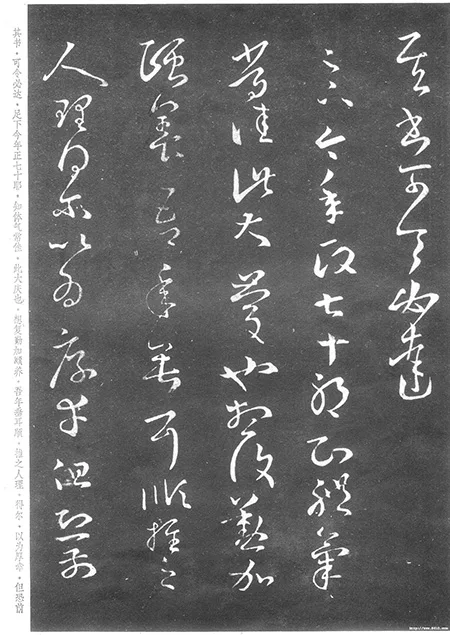 其書可令必達
足下今年政七十耶知體氣
常佳此大慶也想復懃加
頤養吾年垂耳順推之
人理得尔以為厚幸但恐前
其书·可令必达·足下今年正七十耶·知体气常佳·此大庆也·想复勤加頤养·吾年垂耳顺·推之人理·得尔·以为厚幸·但恐前